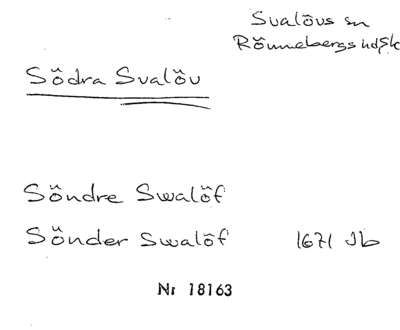 Svalövs sn
Rönnebergs hd Sk
Södra Svalöv
Söndre Swalöf
Sönder Swalöf 1671 Jb
Nr 18163